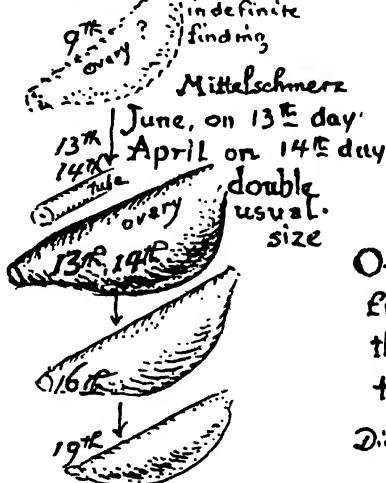 indefinite
finding
9th ?
ovary
Mittelschmerz
June, on 13th day
April on 14th day
13th
14th
tube
double
usual.
size
ovary
13th, 14th
16th
19th